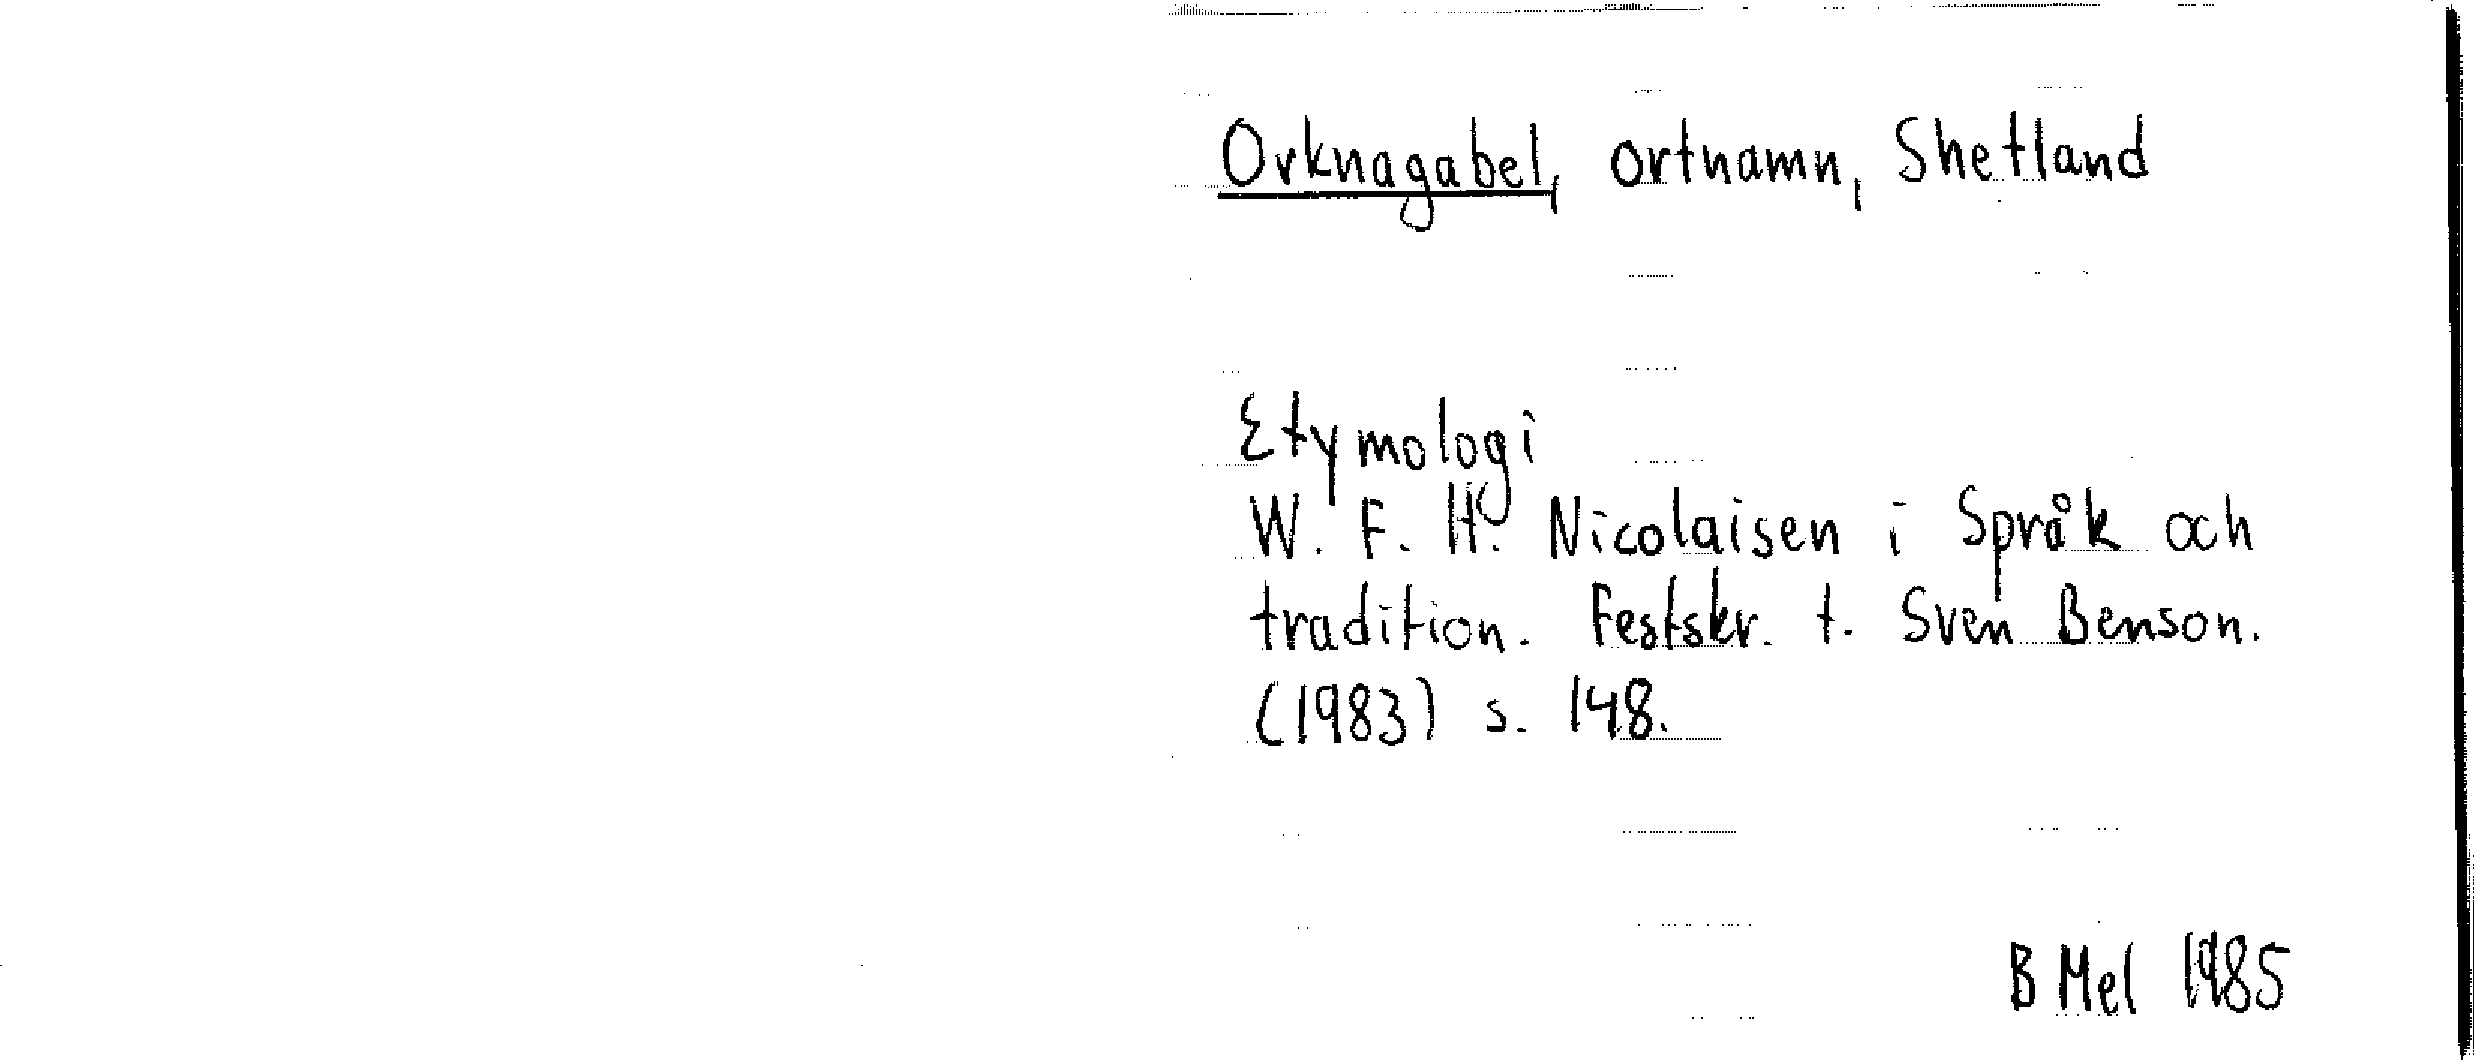 Orknagabel, ortnamn, Shetland
Etymologi
W. F. H. Nicolaisen i Språk och
tradition. Festskr. t. Sven Benson.
(1983) s. 148.
B Mel 1985